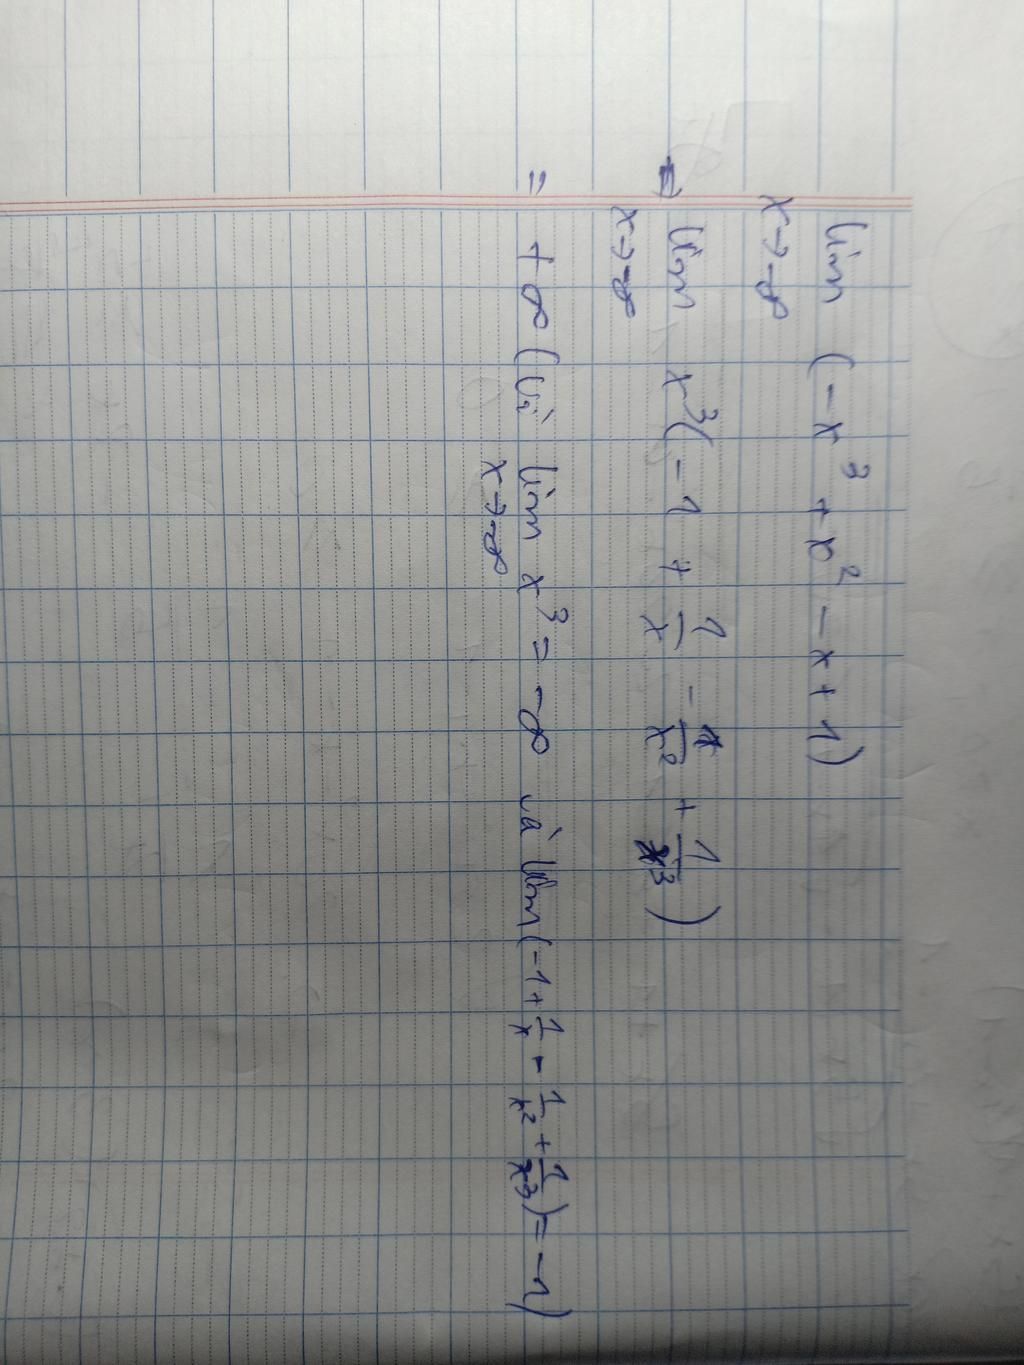 lim (-x³ + x² - x + 1)
x→-∞
= lim x³(-1 + 1/x - 1/x² + 1/x³)
x→-∞
= +∞ (vì lim x³ = -∞ và lim(-1 + 1/x - 1/x² + 1/x³) = -1)
x→-∞